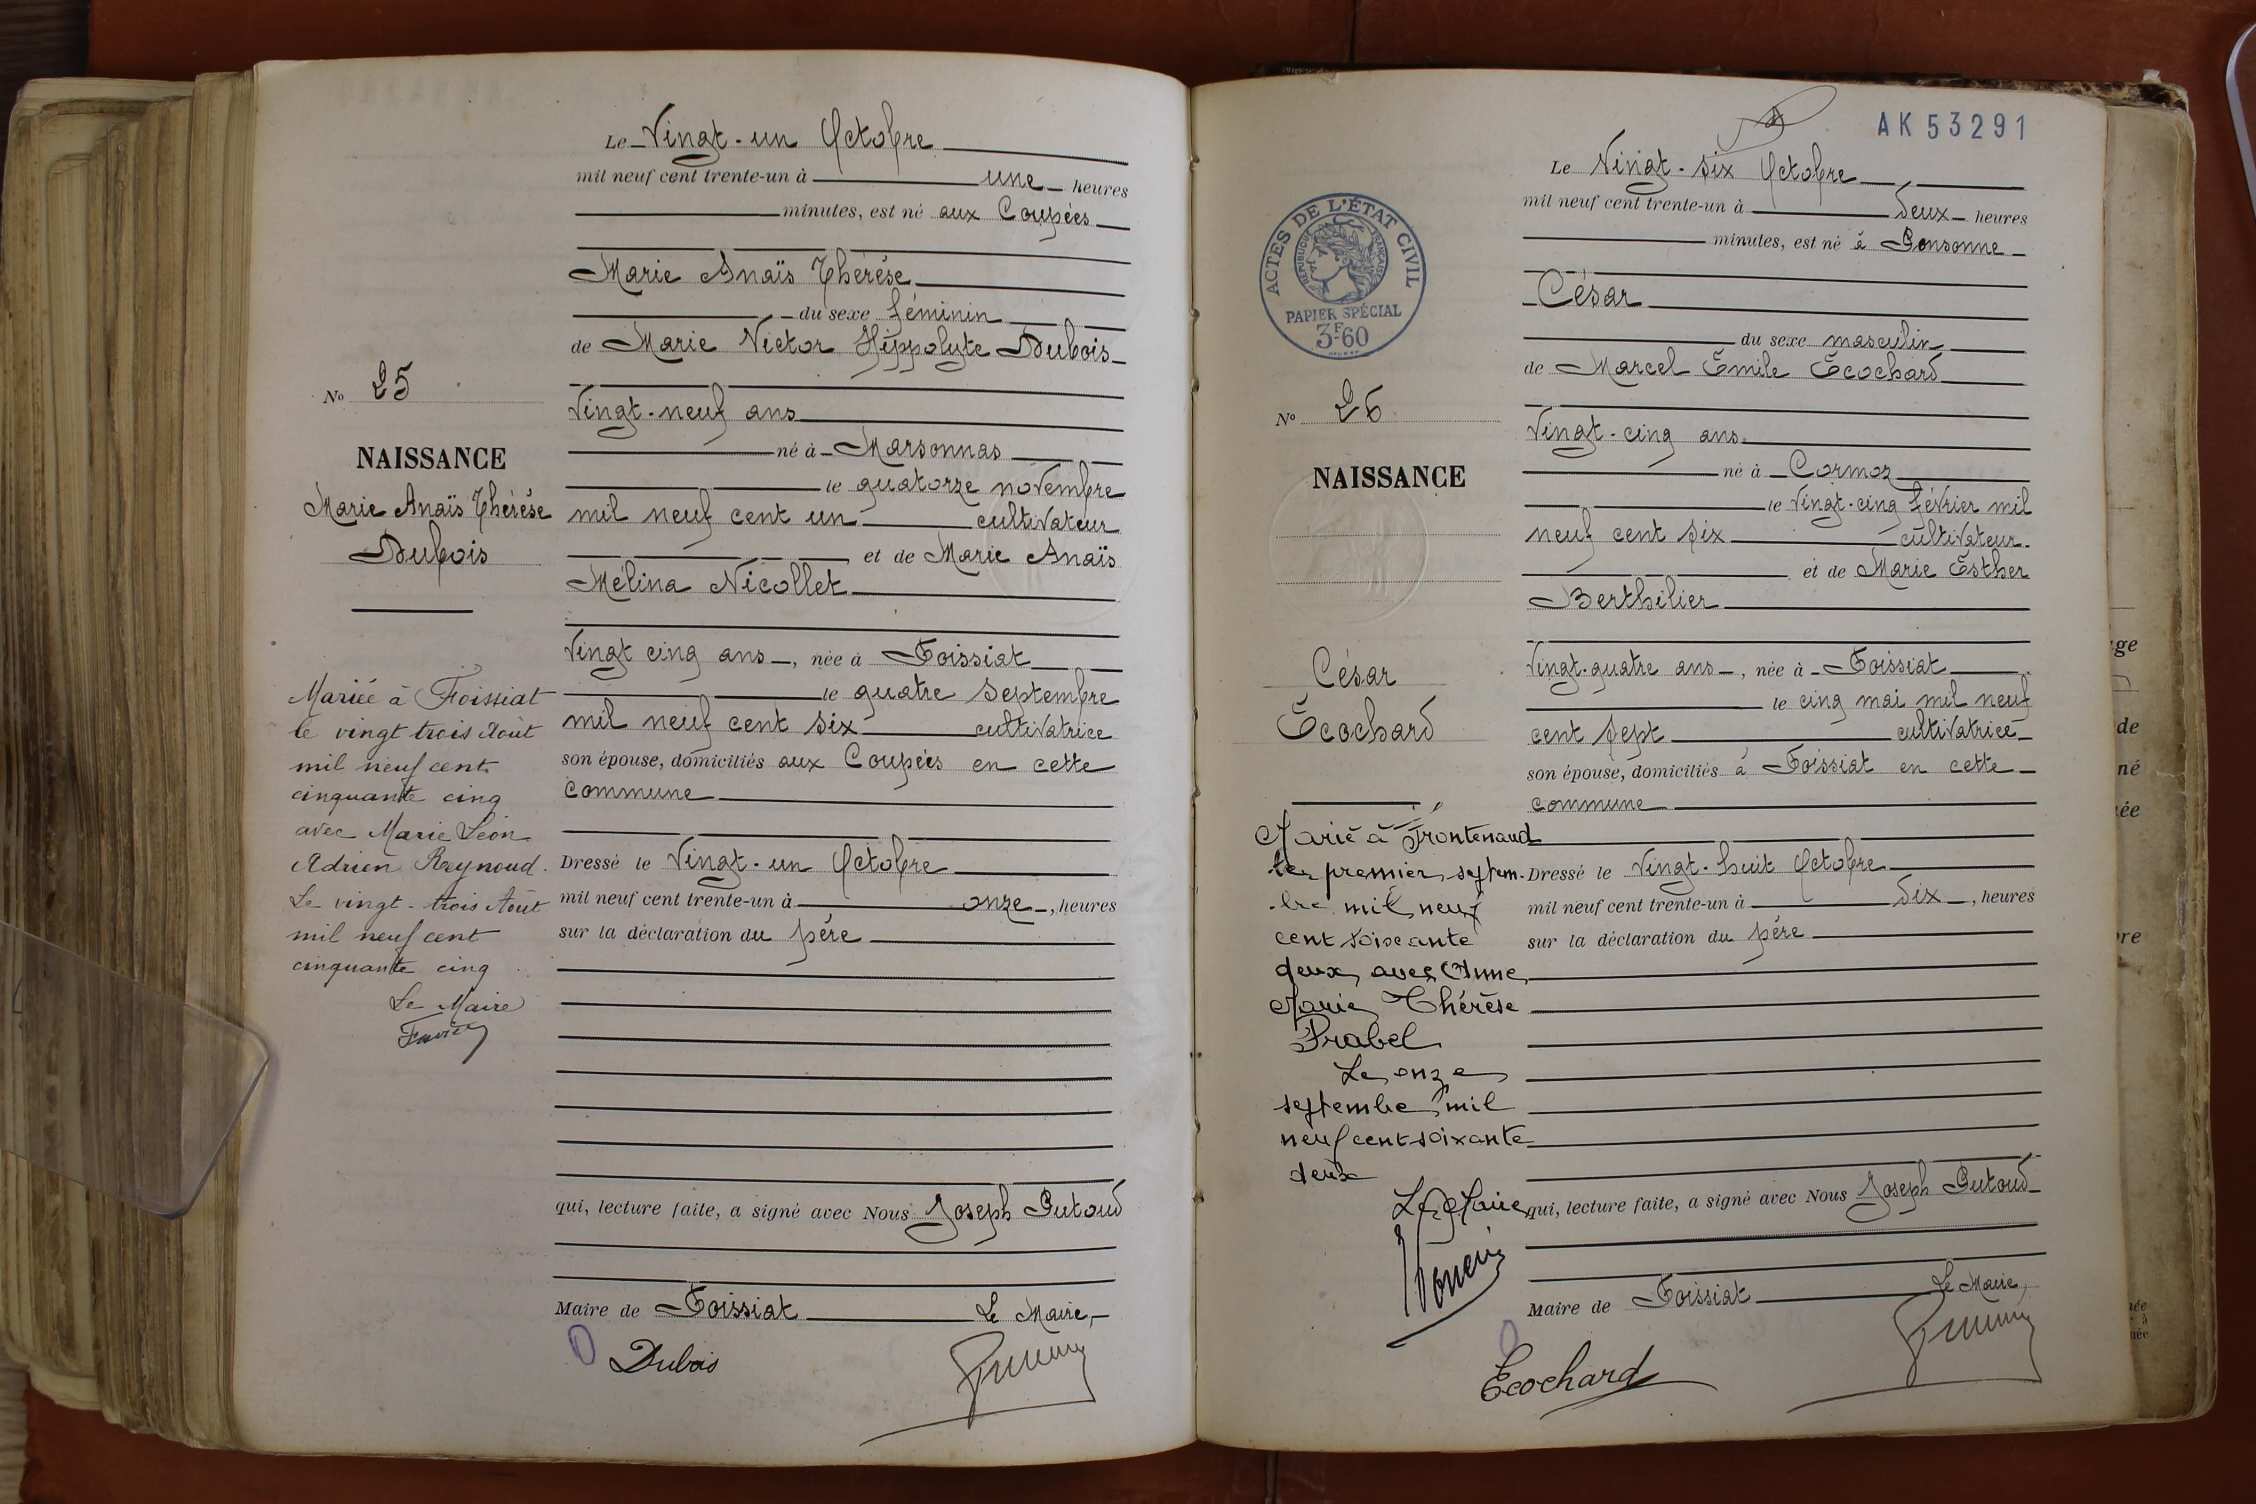 Le Vingt-un Octobre
mil neuf cent trente-un à une heures
minutes, est né aux Coupées
Marie Anaïs Thérèse
du sexe féminin
de Marie Victor Hippolyte Dubois
Vingt-neuf ans
né à Marsonnas
le quatorze novembre
mil neuf cent un cultivateur
et de Marie Anaïs
Mélina Nicollet
Vingt cinq ans, née à Foissiat
le quatre septembre
mil neuf cent six cultivatrice
son épouse, domiciliés aux Coupées en cette
commune
Dressé le Vingt-un Octobre
mil neuf cent trente-un à onze, heures
sur la déclaration du père
qui, lecture faite, a signé avec Nous Joseph Putoud
Maire de Foissiat Le Maire,
Dubois
No 25
NAISSANCE
Marie Anaïs Thérèse
Dubois
Mariée à Foissiat
le vingt trois Août
mil neuf cent
cinquante cinq
avec Marie Léon
Adrien Reynoud.
Le vingt-trois Août
mil neuf cent
cinquante cinq
Le Maire
AK 53291
Le Vingt-six Octobre
mil neuf cent trente-un à deux heures
minutes, est né à Ponsonne
César
du sexe masculin
de Marcel Emile Ecochard
Vingt-cinq ans
né à Cormoz
le Vingt-cinq février mil
neuf cent six cultivateur
et de Marie Esther
Berthilier
Vingt-quatre ans, née à Foissiat
le cinq mai mil neuf
cent sept cultivatrice
son épouse, domiciliés à Foissiat en cette
commune
Dressé le Vingt-huit Octobre
mil neuf cent trente-un à six, heures
sur la déclaration du père
qui, lecture faite, a signé avec Nous Joseph Putoud
Maire de Foissiat Le Maire,
Ecochard
ACTES DE L'ÉTAT CIVIL
RÉPUBLIQUE FRANÇAISE
PAPIER SPÉCIAL
3F60
No 26
NAISSANCE
César
Ecochard
Marié à Frontenaud
le premier septem-
bre mil neuf
cent soixante
deux, avec Anne
Marie Thérèse
Prabel
Le onze
septembre mil
neuf cent soixante
deux
Le Maire
ge
de
né
ée
re